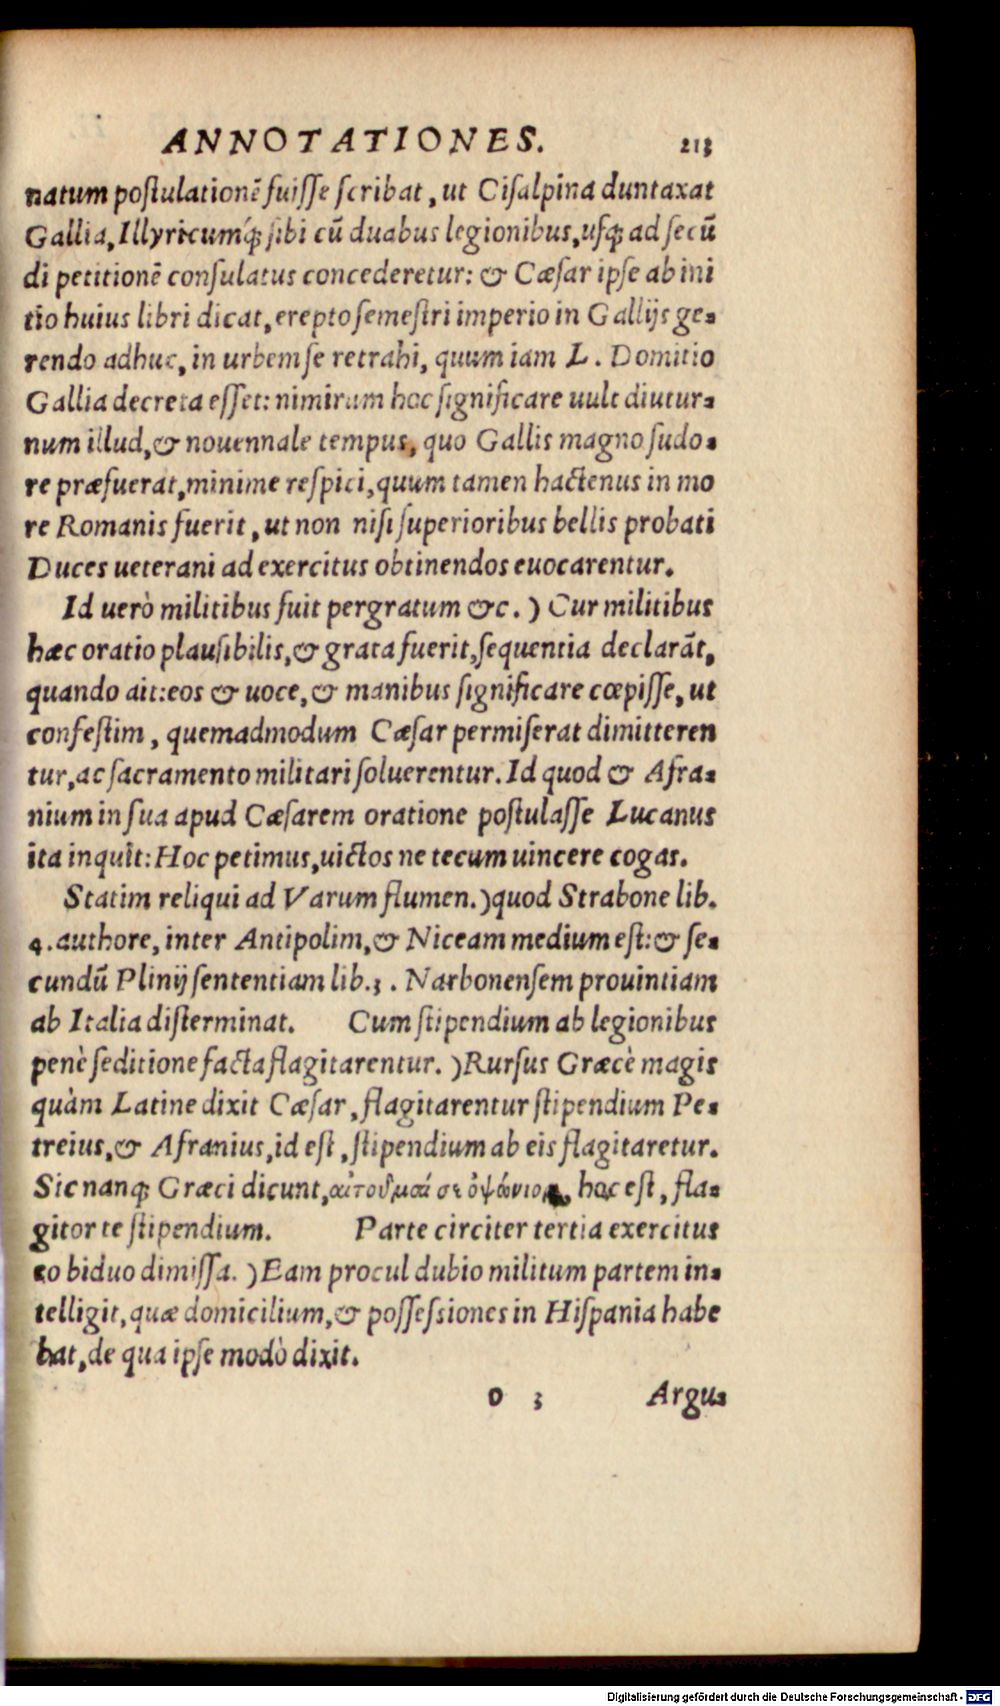 ANNOTATIONES. 213
natum poſtulationẽ fuiſſe ſcribat, ut Ciſalpina duntaxat
Gallia, Illyricumq́; ſibi cũ duabus legionibus, uſq; ad ſecũ
di petitionẽ conſulatus concederetur: & Cæſar ipſe ab ini
tio huius libri dicat, erepto ſemeſtri imperio in Gallijs ge-
rendo adhuc, in urbem ſe retrahi, quum iam L. Domitio
Gallia decreta eſſet: nimirum hoc ſignificare uult diutur-
num illud, & nouennale tempus, quo Gallis magno ſudo-
re præfuerat, minime reſpici, quum tamen hactenus in mo
re Romanis fuerit, ut non niſi ſuperioribus bellis probati
Duces ueterani ad exercitus obtinendos euocarentur.
Id uerò militibus fuit pergratum &c.) Cur militibus
hæc oratio plauſibilis, & grata fuerit, ſequentia declarãt,
quando ait: eos & uoce, & manibus ſignificare cœpiſſe, ut
confeſtim, quemadmodum Cæſar permiſerat dimitteren
tur, ac ſacramento militari ſoluerentur. Id quod & Afra-
nium in ſua apud Cæſarem oratione poſtulaſſe Lucanus
ita inquit: Hoc petimus, uictos ne tecum uincere cogas.
Statim reliqui ad Varum flumen.) quod Strabone lib.
4. authore, inter Antipolim, & Niceam medium eſt: & ſe-
cundũ Plinij ſententiam lib. 3. Narbonenſem prouintiam
ab Italia diſterminat. Cum ſtipendium ab legionibus
penè ſeditione facta flagitarentur.) Rurſus Græcè magis
quàm Latine dixit Cæſar, flagitarentur ſtipendium Pe-
treius, & Afranius, id eſt, ſtipendium ab eis flagitaretur.
Sic nanq; Græci dicunt, αἰτοῦμαί σε ὀψώνιον, hoc eſt, fla-
gitor te ſtipendium. Parte circiter tertia exercitus
eo biduo dimiſſa.) Eam procul dubio militum partem in-
telligit, quæ domicilium, & poſſeſsiones in Hiſpania habe
bat, de qua ipſe modò dixit.
o 3 Argu-
Digitalisierung gefördert durch die Deutsche Forschungsgemeinschaft - DFG